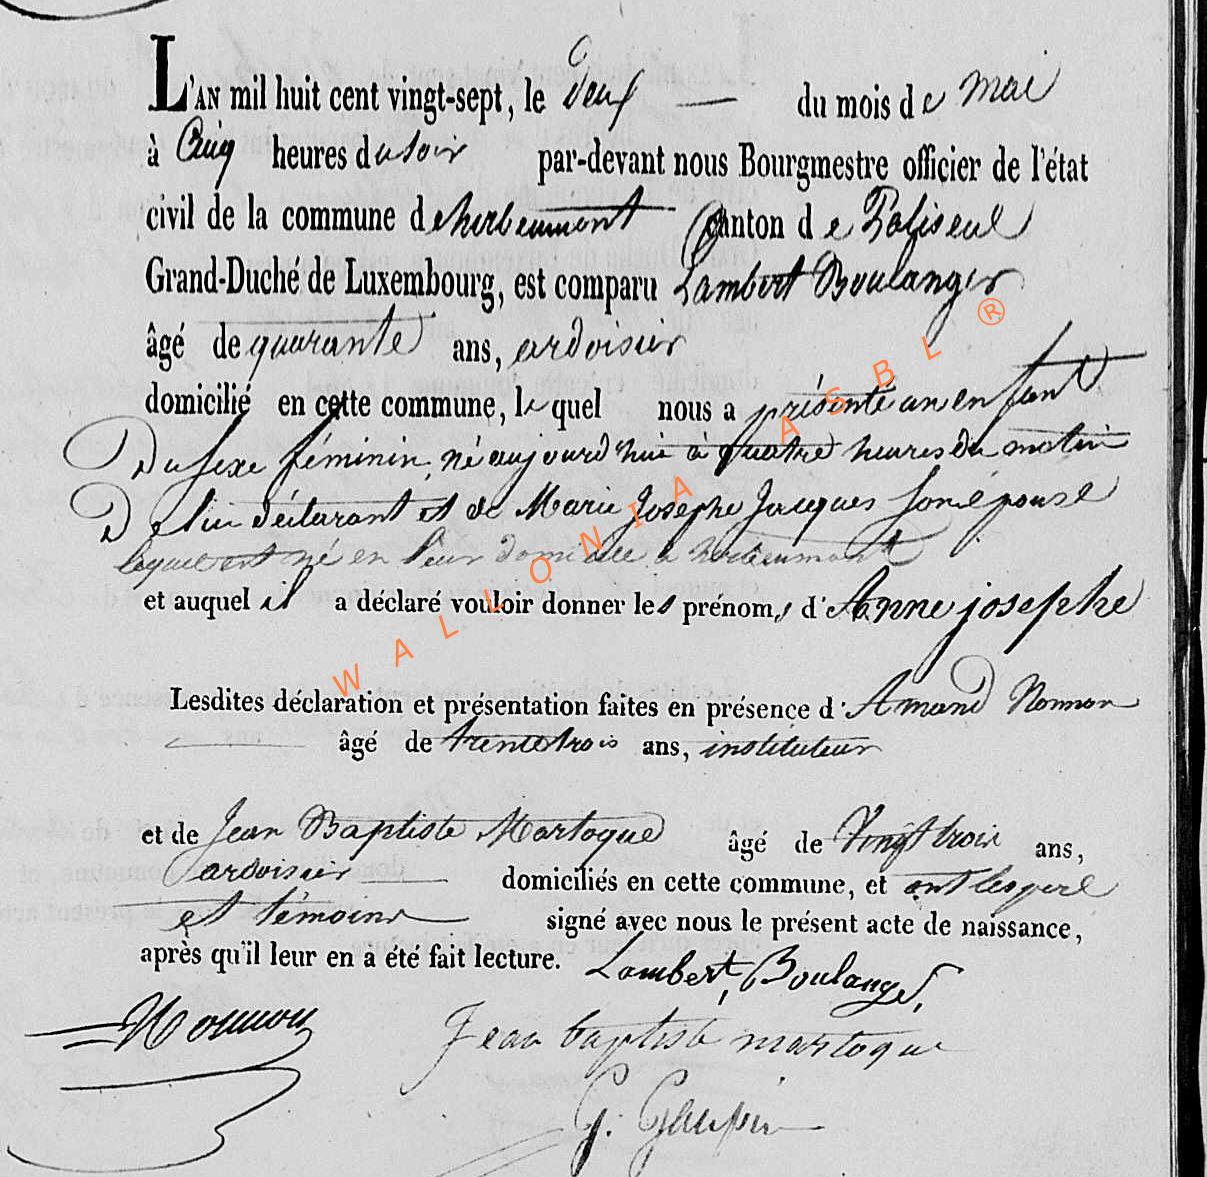 L'AN mil huit cent vingt-sept, le deux du mois de mai
à Cinq heures du soir par-devant nous Bourgmestre officier de l'état
civil de la commune d'herbeumont Canton de Paliseul
Grand-Duché de Luxembourg, est comparu Lambert Boulanger
âgé de quarante ans, ardoisier
domicilié en cette commune, lequel nous a présenté un enfant
Du sexe féminin, né aujourd'hui à quatre heures du matin
De lui déclarant et de Marie Josephe Jacques son épouse
lequel est né en leur domicile à herbeumont
et auquel il a déclaré vouloir donner les prénoms d'Anne josephe
Lesdites déclaration et présentation faites en présence d'Amand Nonnon
âgé de trente trois ans, instituteur
et de Jean Baptiste Martoque âgé de Vingt trois ans,
ardoisier domiciliés en cette commune, et ont les père
et témoins signé avec nous le présent acte de naissance,
après qu'il leur en a été fait lecture. Lambert Boulanger
Nonnon
Jean baptiste martoque
WALLONIA ASBL ®